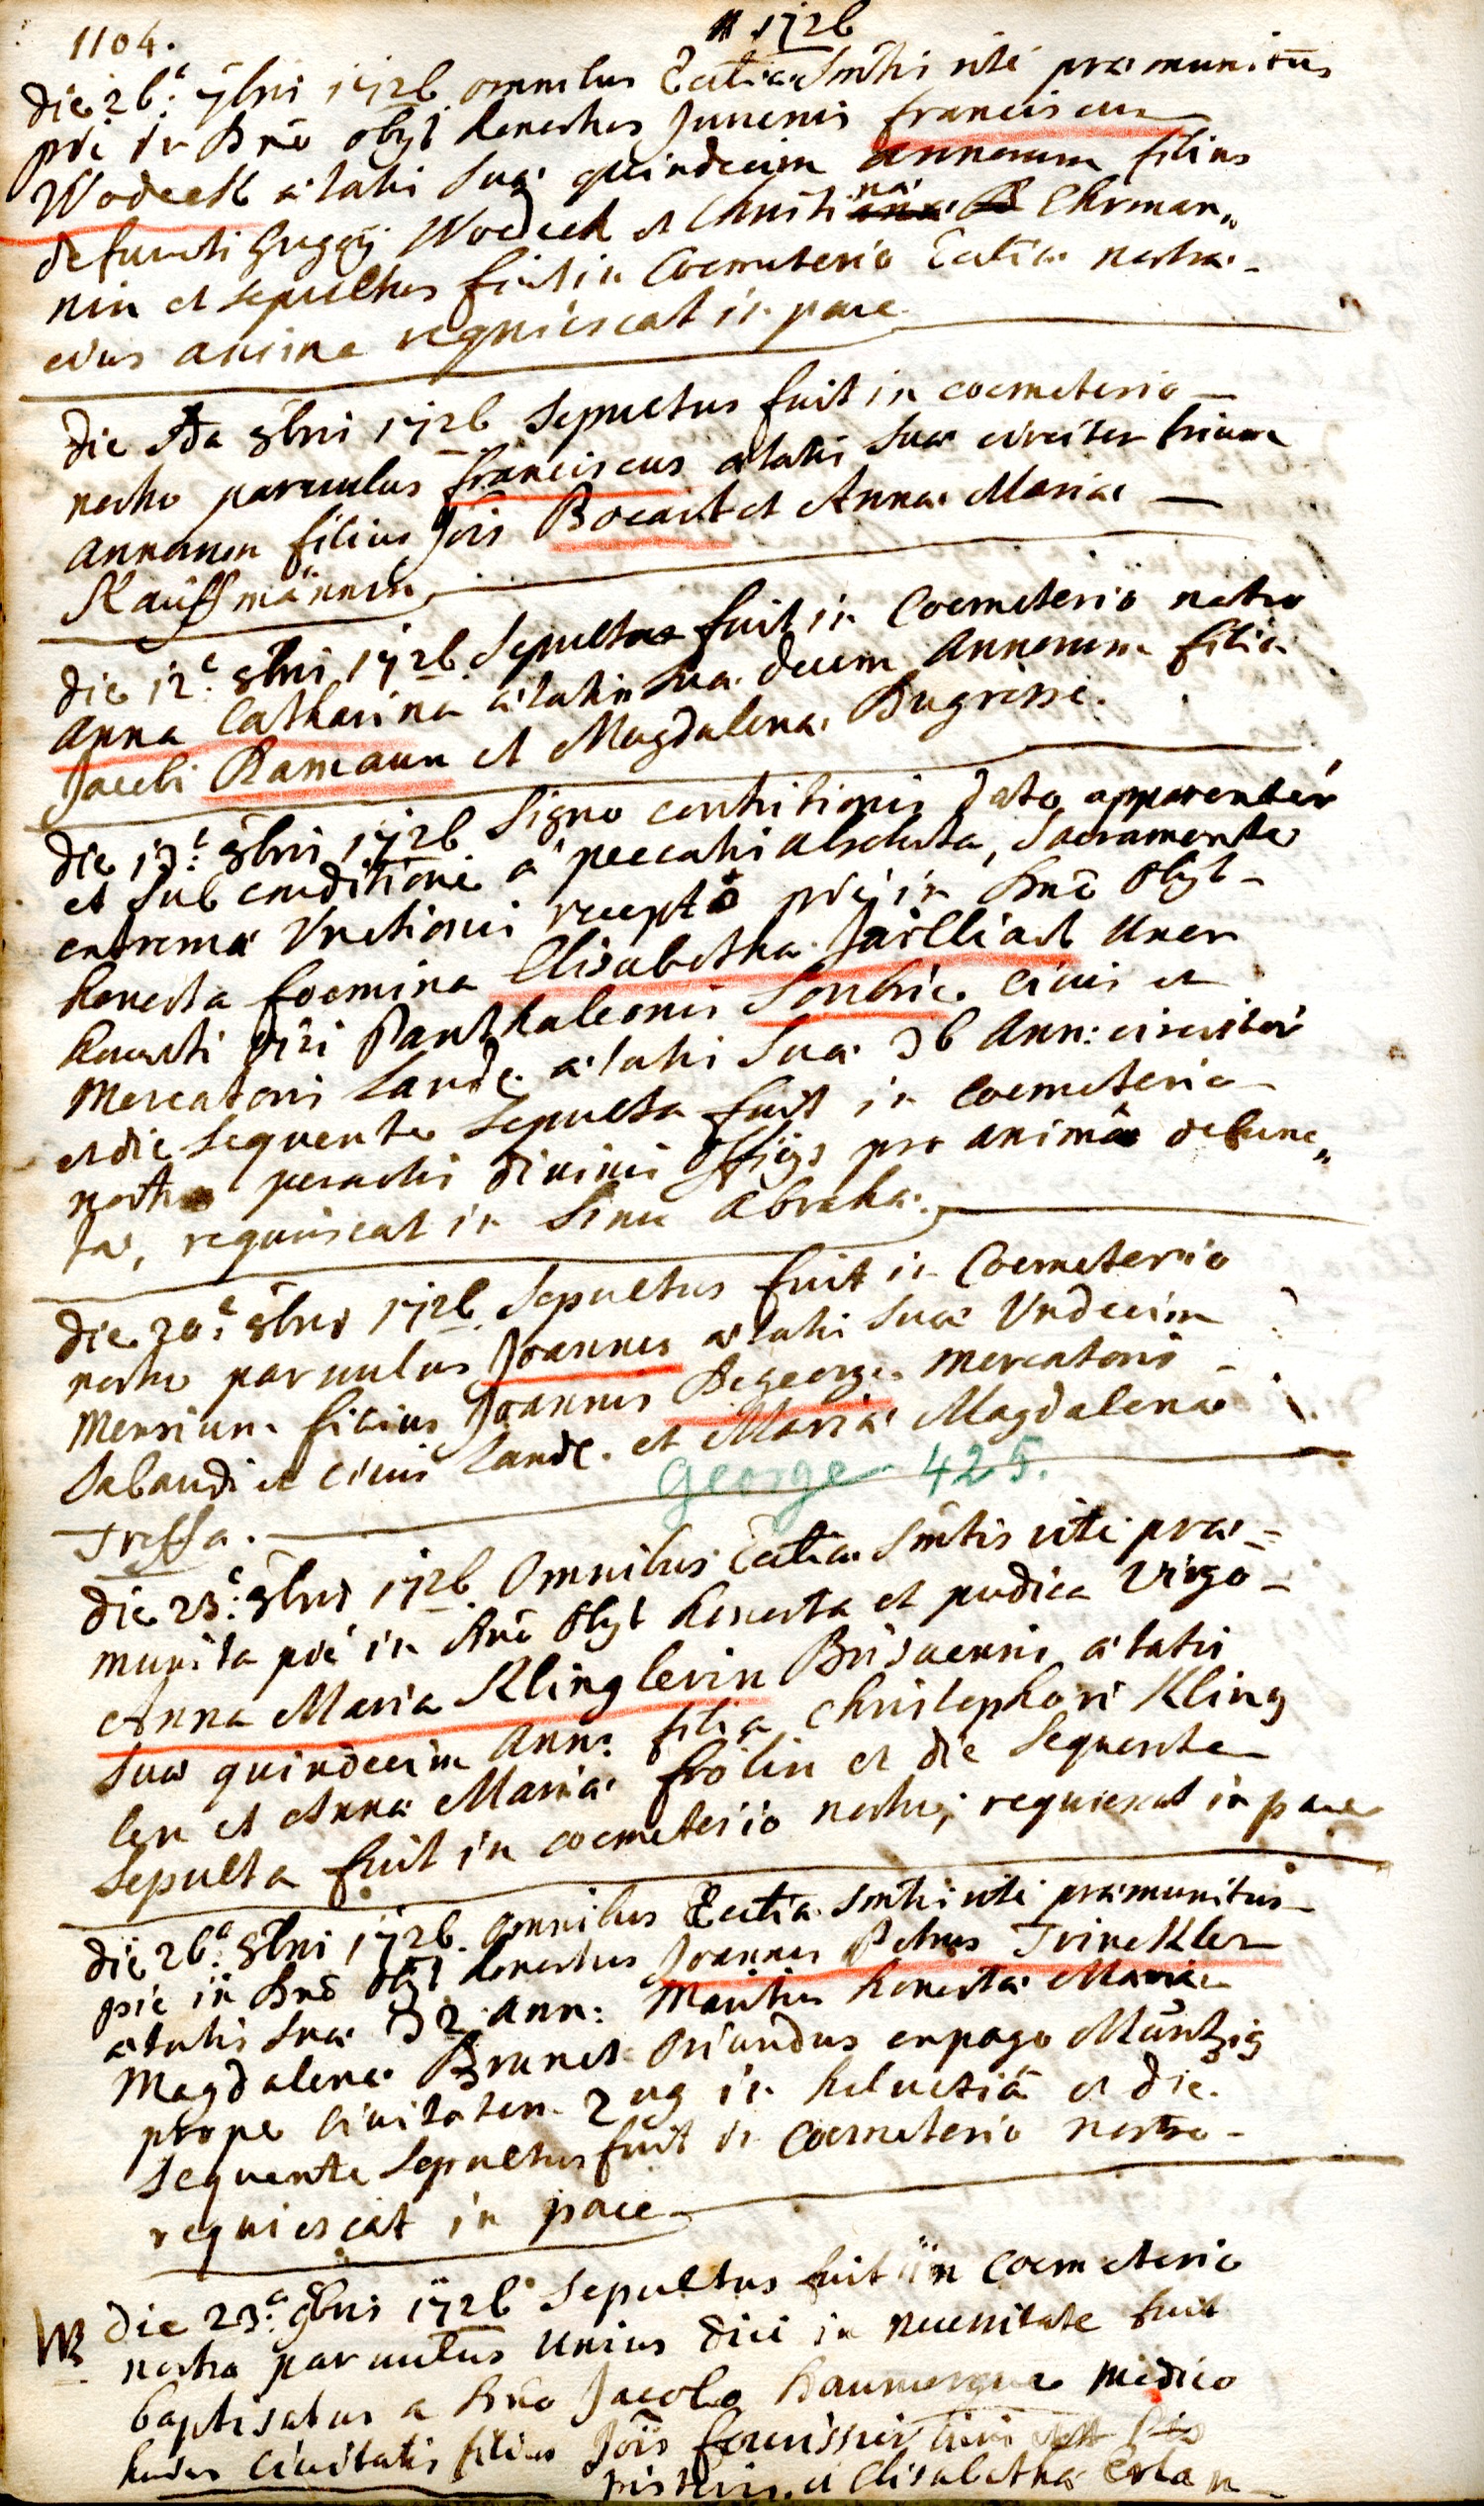 1104.
1726
die 26.ª 7bris 1726 omnibus Eccliæ Smtis rite præmunitus
pie in Dno obyt honestus Juvenis franciscus
Wodeck ætatis suæ quindecim annorum filius
defuncti Greggy Wodeck et Christinæ Ehrman„
nin et sepultus fuit in Coemeterio Eccliæ nostræ
eius anima requiescat in pace
die 8bris 1726 Sepultus fuit in coemeterio
nostro parvulus franciscus ætatis suæ circiter trium
annorum filius Jois Bocart et Annæ Mariæ
Kauffmännin
die 12.ª 8bris 1726 Sepulta fuit in Coemeterio nostro
Anna Catharina ætatis suæ decem Annorum filia
Jacobi Ramaun et Magdalenæ Bugrissi.
die 13.ª 8bris 1726 Signo contritionis dato apparenter
et sub conditione a peccatis absoluta, Sacramento
extremæ Unctionis recepto pie in Dno obyt
honesta foemina Elisabetha Jailliart Uxor
honesti viri Panthaleonis Sontric. civis et
Mercatoris Landt. ætatis suæ 36 Ann: circiter
et die sequente Sepulta fuit in Coemeterio
nostro peractis divinis offijs pro anima defunc„
tæ, requiescat in Sinu Abrahæ.
die 20.ª 8bris 1726 Sepultus fuit in Coemeterio
nostro parvulus Joannes ætatis suæ Undecim
Mensium filius Joannis Degeorge. Mercatoris
Sabaudi et civis Landt. et Mariæ Magdalenæ
George 425.
Treffa.
die 23.ª 8bris 1726 Omnibus Eccliæ Smtis rite præ=
munita pie in Dno obyt honesta et pudica Virgo
Anna Maria Klinglerin Brisacensis ætatis
suæ quindecim Ann: filia Christophori Kling
ler et Annæ Mariæ frölin et die sequente
Sepulta fuit in coemeterio nostro; requiescat in pace
die 26.ª 8bris 1726 omnibus Eccliæ Smtis rite præmunitus
pie in Dno obyt honestus Joannes Petrus Trinckler
ætatis suæ 32 ann: Maritus honestæ Mariæ
Magdalenæ Brunet oriundus ex pago Müntzig
prope civitatem Zug in helvetia et die
sequente sepultus fuit in Coemeterio nostro
requiescat in pace
NB die 23.ª 8bris 1726 Sepultus fuit in Coemeterio
nostro parvulus unius diei in necessitate fuit
baptisatus a Dno Jacobo medico
huius civitatis filius Jois civis
pistoris. et Elisabethæ